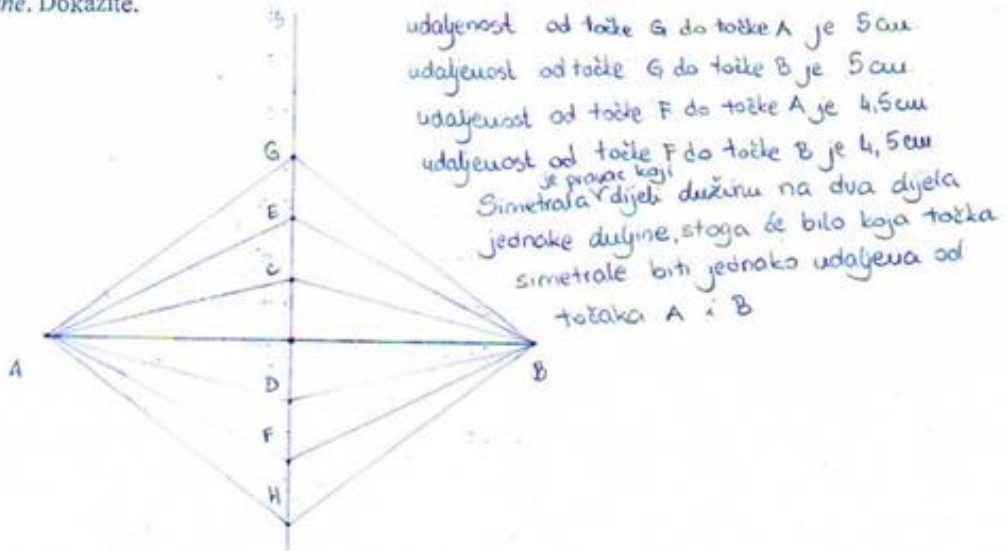 ne. Dokažite.
udaljenost od točke G do točke A je 5cm
udaljenost od točke G do točke B je 5cm
udaljenost od točke F do točke A je 4,5cm
udaljenost od točke F do točke B je 4,5cm
je pravac koji
Simetrala dijeli dužinu na dva dijela
jednake duljine, stoga će bilo koja točka
simetrale biti jednako udaljena od
točaka A i B
G
E
C
A
B
D
F
H